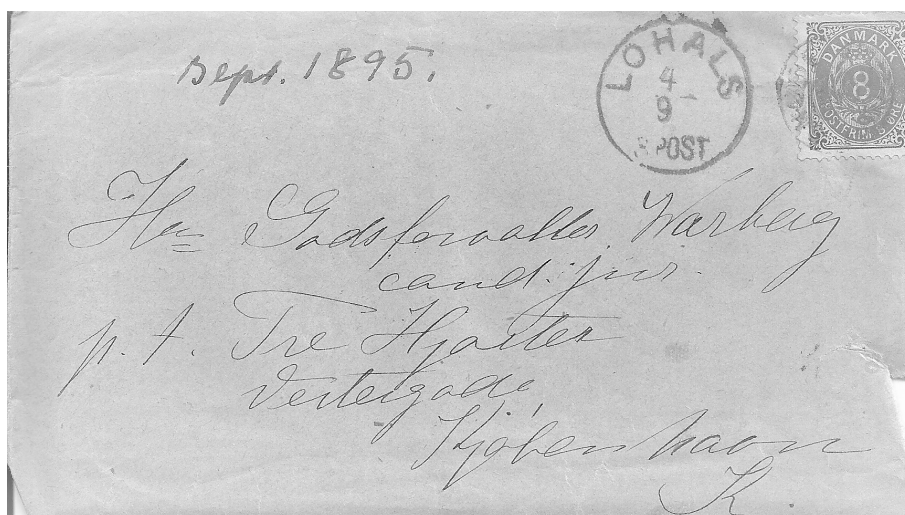 Sept. 1895.
LOHALS
4
9
S POST
DANMARK
8
POSTFRIM. S ØRE
Hr Godsforvalter Warberg
cand. jur.
p. t. Tre Hjorter
Vestergade,
Kjøbenhavn
K.